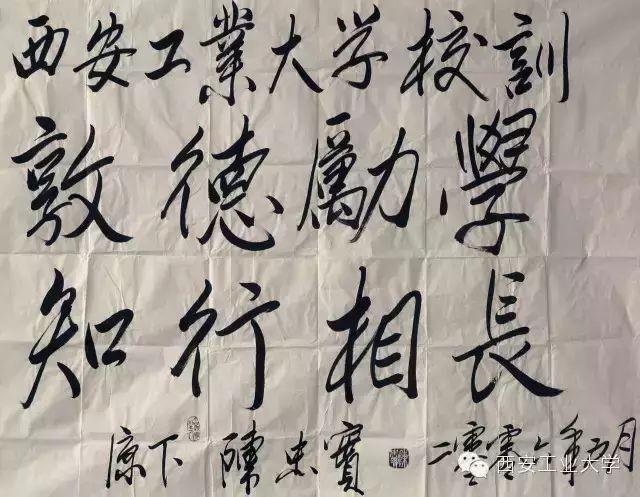 西安工業大学校訓
敦德勵學
知行相長
原下 陳忠實 二零零六年五月
西安工业大学